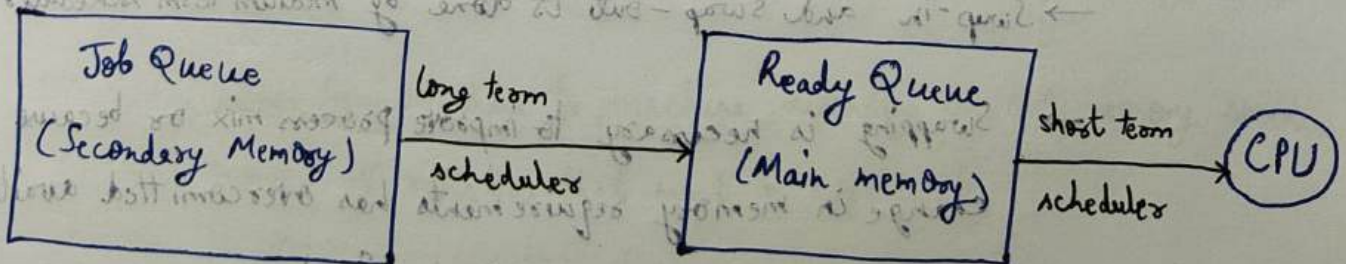 Job Queue
(Secondary Memory)
long term
scheduler
Ready Queue
(Main memory)
short term
scheduler
CPU